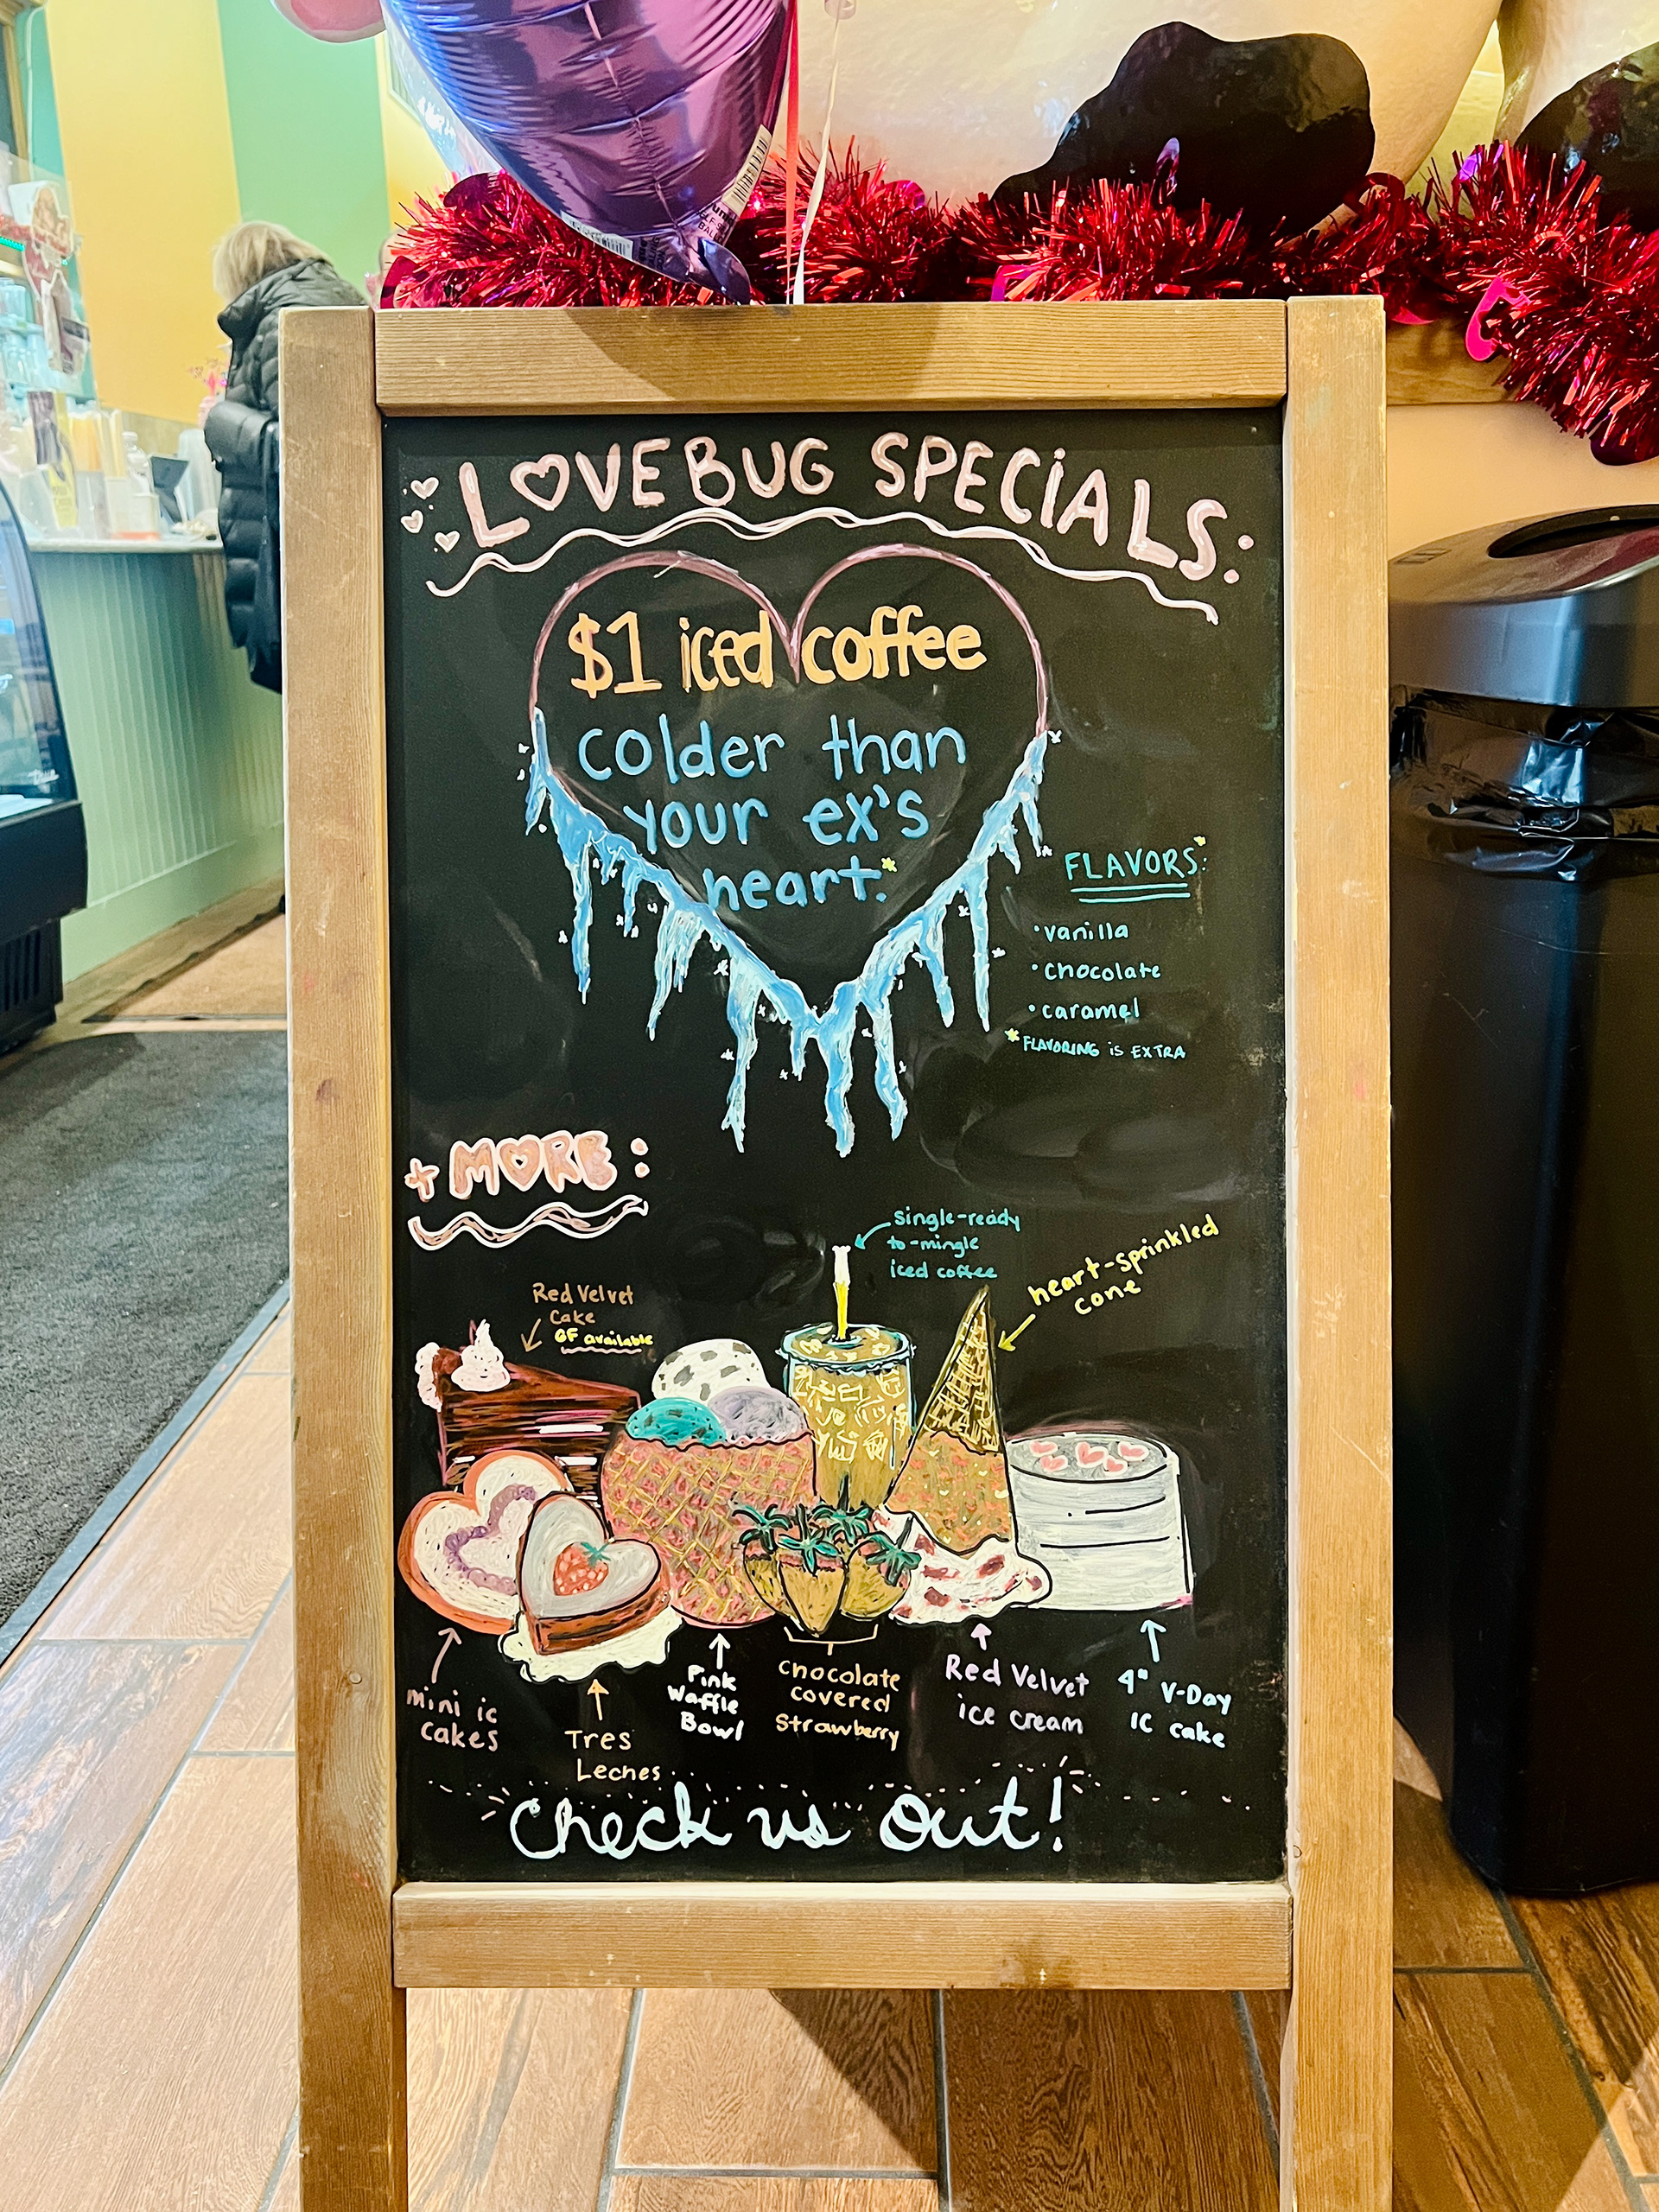 LOVEBUG SPECiALS:
$1 iced coffee
colder than
your ex's
heart.*
FLAVORS*:
• vanilla
• chocolate
• caramel
*FLAVORING iS EXTRA
+ MORE:
single-ready
to-mingle
iced coffee
heart-sprinkled
cone
Red Velvet
Cake
GF available
mini ic
cakes
Tres
Leches
Pink
Waffle
Bowl
chocolate
covered
strawberry
Red Velvet
ice cream
4" V-Day
IC cake
Check us out!